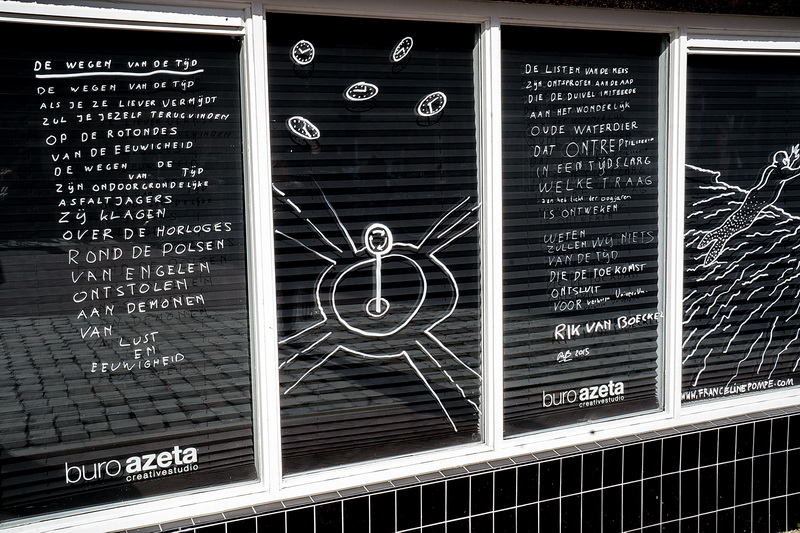 DE WEGEN VAN DE TIJD
DE WEGEN VAN DE TIJD
ALS JE ZE LIEVER VERMIJDT
ZUL JE JEZELF TERUGVINDEN
OP DE ROTONDES
VAN DE EEUWIGHEID
DE WEGEN VAN DE TIJD
ZIJN ONDOORGRONDELIJKE
ASFALTJAGERS
ZIJ KLAGEN
OVER DE HORLOGES
ROND DE POLSEN
VAN ENGELEN
ONTSTOLEN
AAN DEMONEN
VAN
LUST
EN
EEUWIGHEID
buro azeta
creativestudio
DE LISTEN VAN DE MENS
ZIJN ONTSPROTEN AAN DE AAP
DIE DE DUIVEL IMITEERDE
AAN HET WONDERLIJK
OUDE WATERDIER
DAT
IN EEN TIJDSLANG
WELKE TRAAG
aan het licht der oogjaren
IS ONTWEKEN
WETEN
ZULLEN WIJ NIETS
VAN DE TIJD
DIE DE TOEKOMST
ONTSLUIT
VOOR
RIK VAN BOECKEL
2015
buro azeta
creativestudio
WWW.FRANCELINEPOMPE.COM